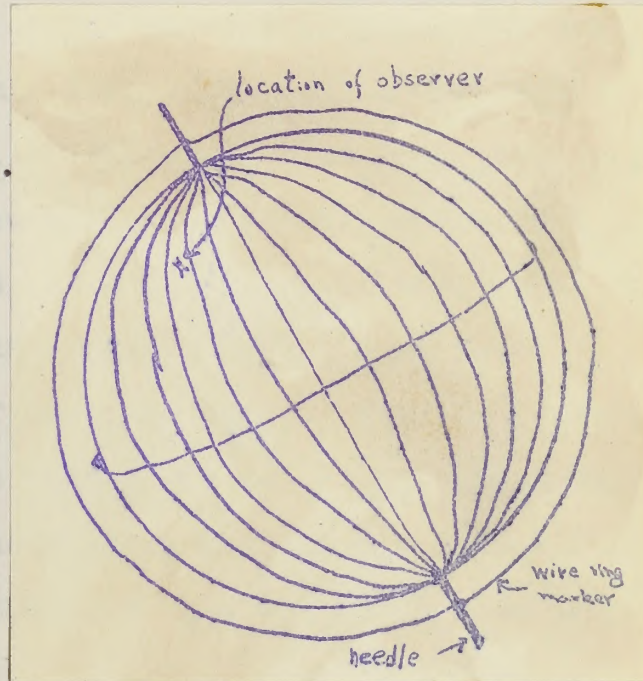 location of observer
wire ring
marker
needle